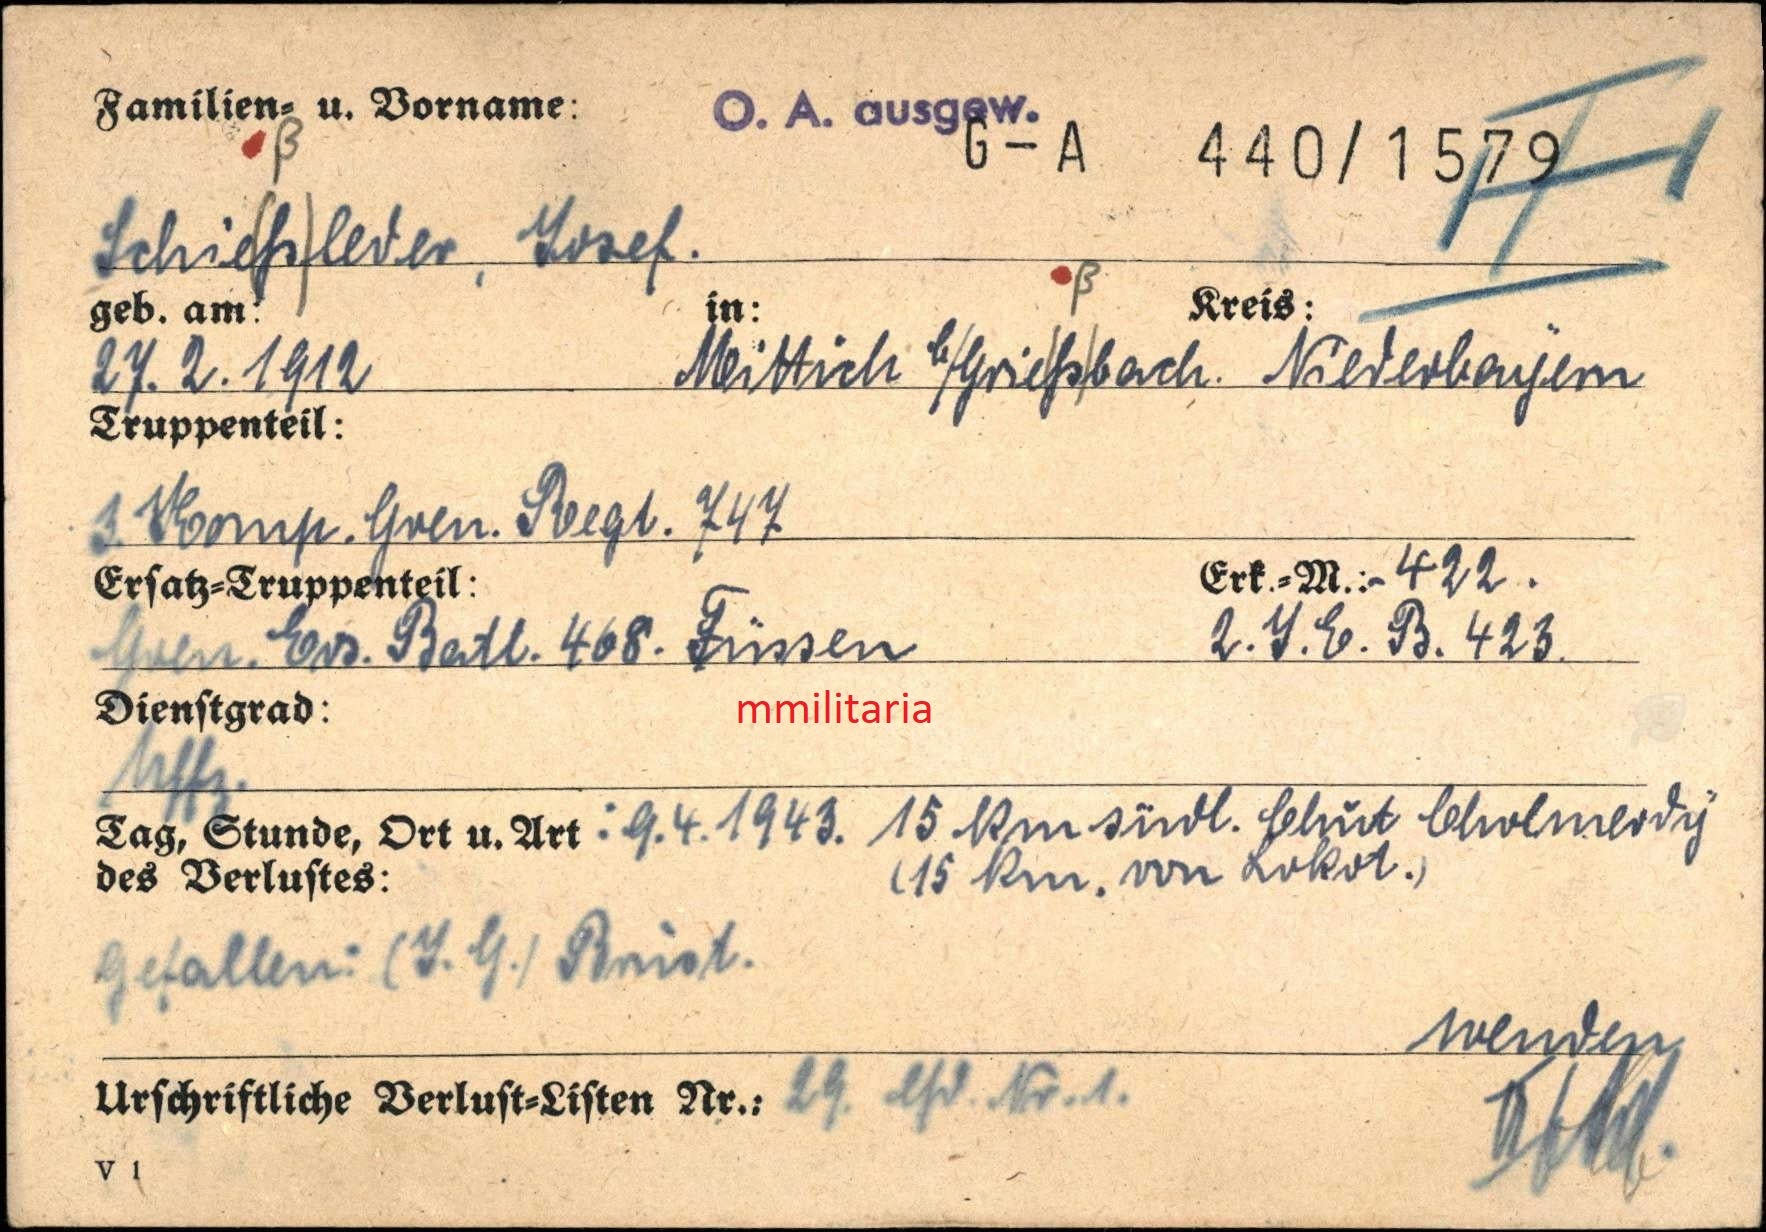 Familien- u. Vorname:
O. A. ausgew.
G-A 440/1579
β
Schie(ß)leder, Josef.
geb. am: in: Kreis:
β
27. 2. 1912 Mittich b/Grie(ß)bach. Niederbayern
Truppenteil:
3. Komp. Gren. Regt. 747
Ersatz-Truppenteil: Erk.-M.:- 422.
Gren. Ers. Batl. 468. Füssen 2. J. E. B. 423.
Dienstgrad:
mmilitaria
Uffz.
Tag, Stunde, Ort u. Art : 9. 4. 1943. 15 km südl. Chut Cholmerdy
des Verlustes: (15 km. von Lokot.)
gefallen: (J. G.) Brust.
wenden
Urschriftliche Verlust-Listen Nr.: 29. lfd. Nr. 1.
V 1